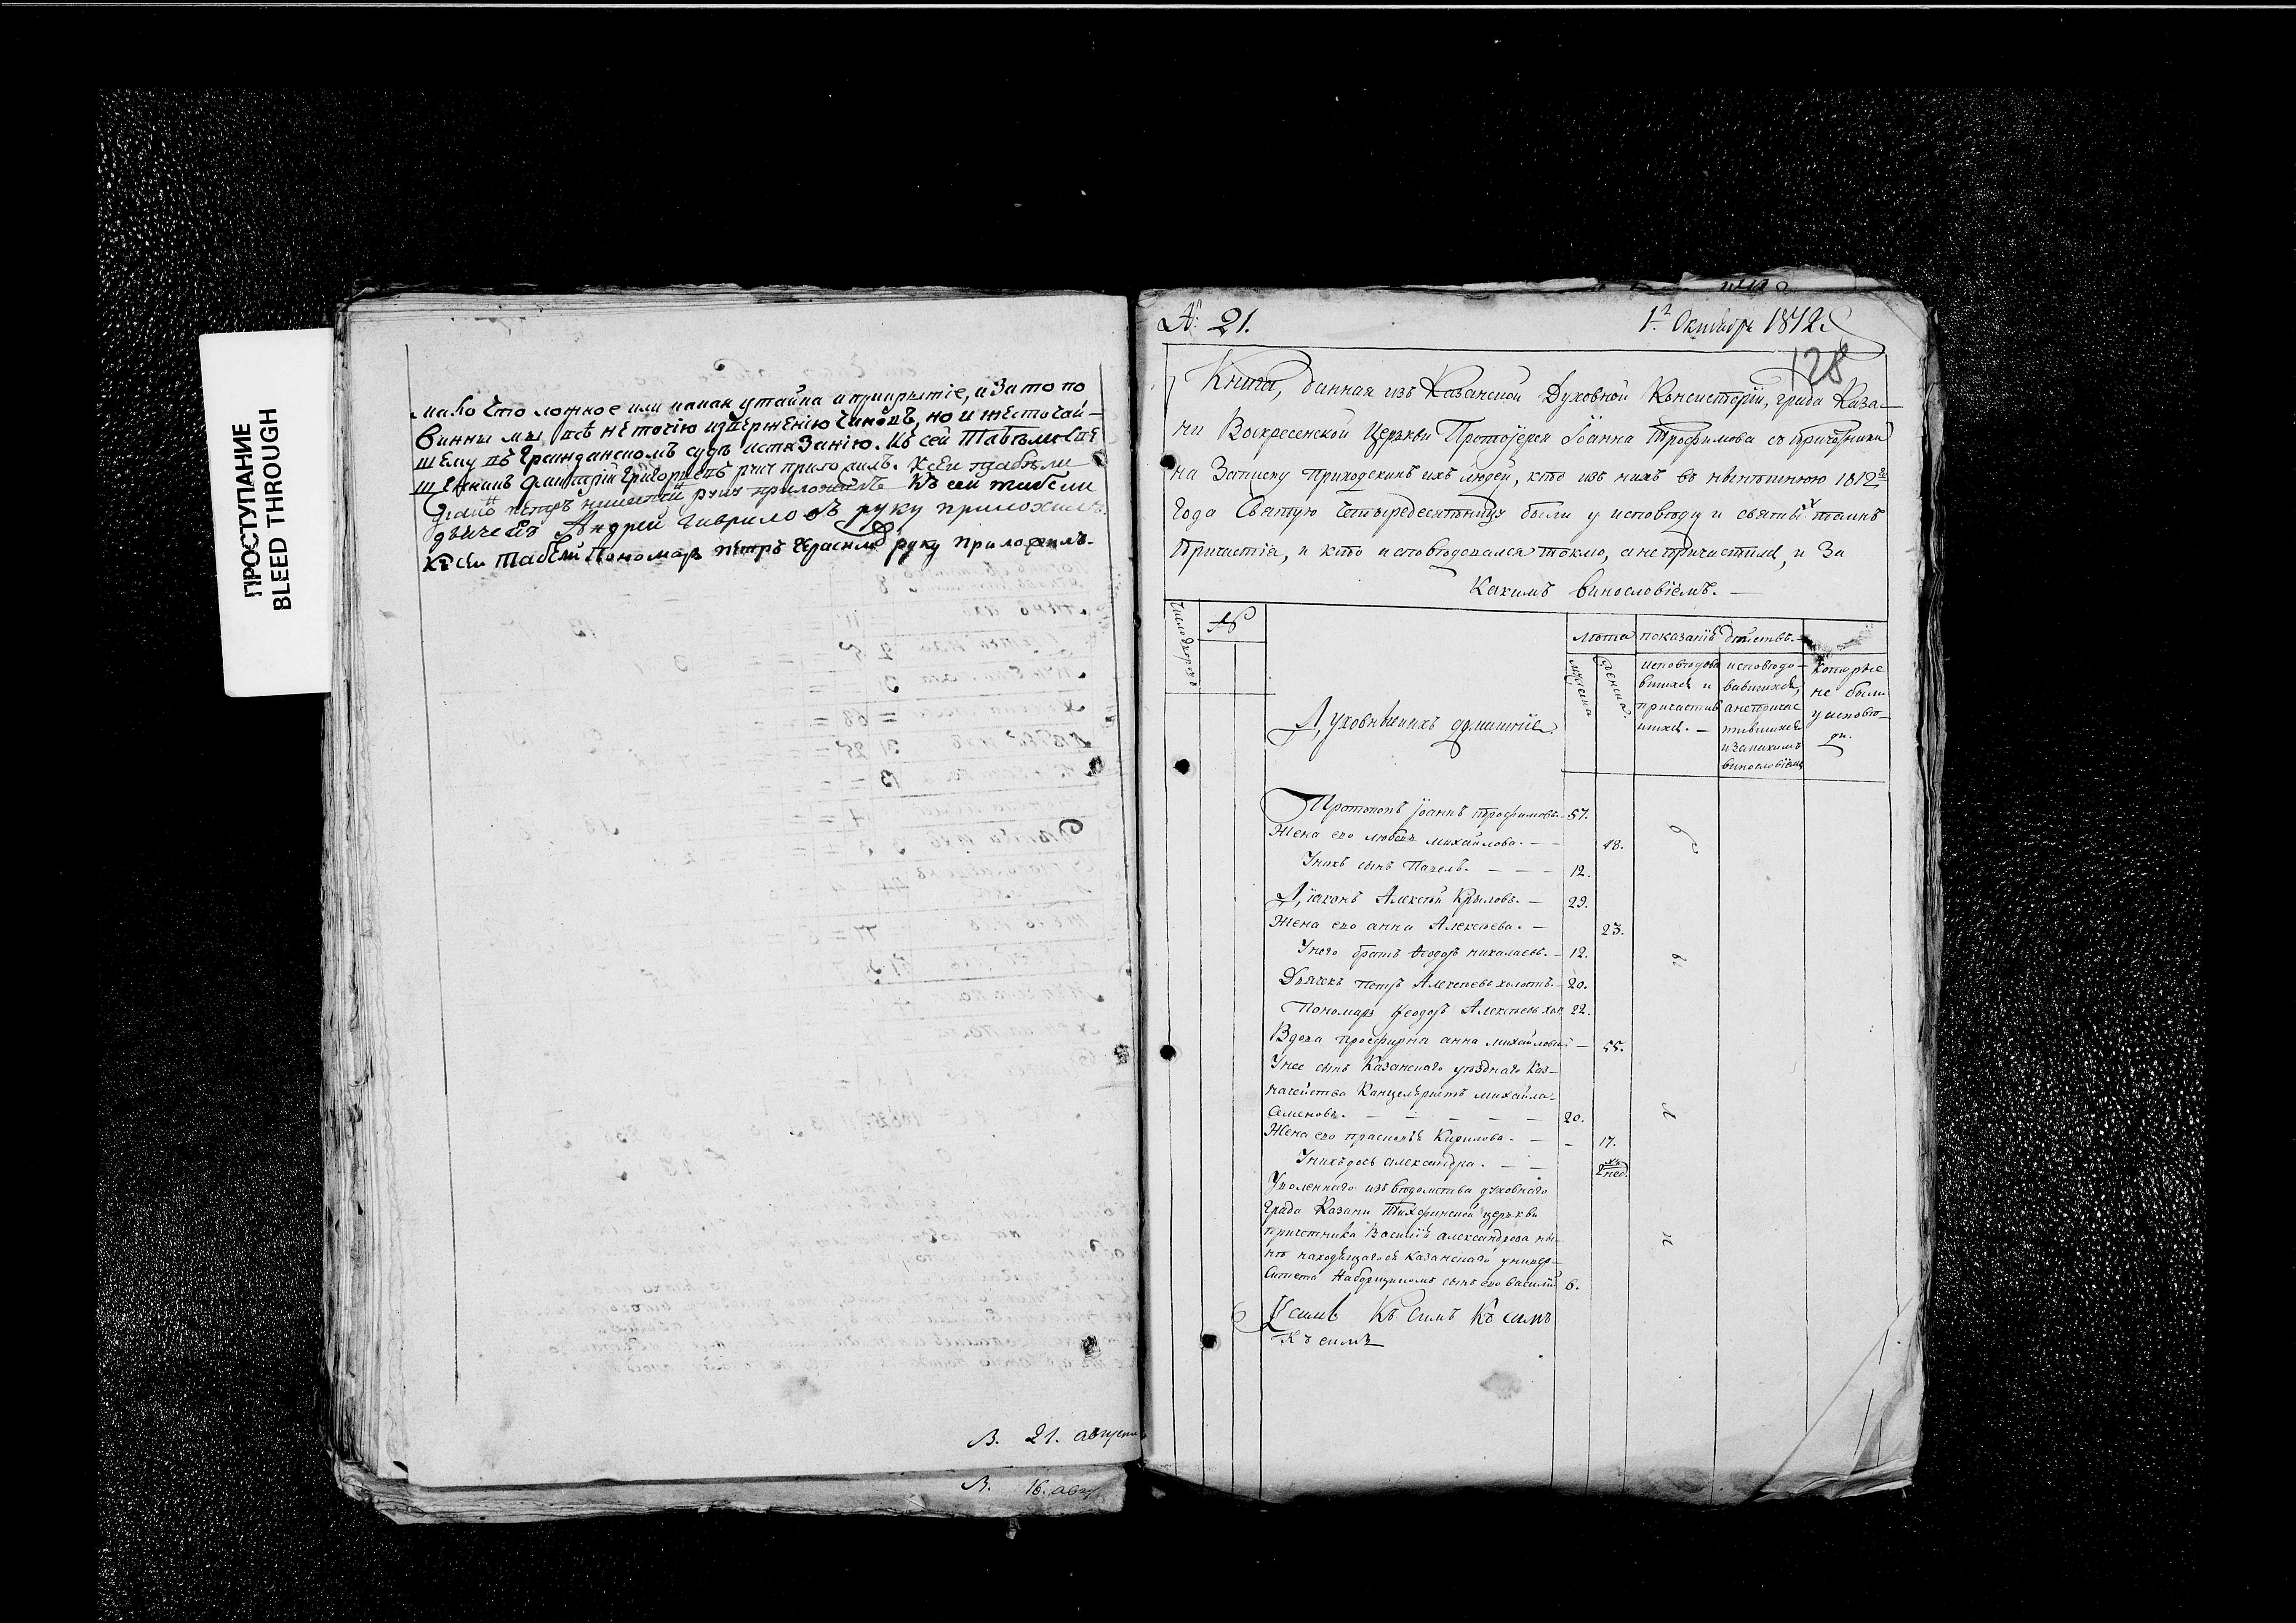 ПРОСТУПАНИЕ
BLEED THROUGH
мало что ложное или какая утайка и прикрытіе, и за то по
винны мы не точію изверженію чиновъ, но и жесточай-
шему въ Гражданскомъ судѣ истязанію. Къ сей Табели Свя
щенникъ Димитрій Григорьевъ руку приложилъ. Ксеи табѣли
руку приложилъ Къ сей табели
дьячекъ Андрей Гавриловъ руку приложилъ
Ксеи Табели Пономарь петръ Герасимовъ руку приложилъ.
В. 21. августа
В. 16. авгу
№ 21.
1.го Октября 1812.
128
Книга, данная изъ Казанской Духовной Консисторіи, града Каза-
ни Воскресенской Церкви Протоіерея Іоанна Трофимова съ причетники
на Записку приходскихъ ихъ людей, кто изъ нихъ въ нынѣшнюю 1812го
Года Святую Четыредесятницу были у исповѣди и святыхъ таинъ
Причастія, и кто исповѣдовался токмо, а не причастился, и За
Какимъ винословіемъ. —
Число дворовъ
№
лѣта
показаніе дѣйствъ.
мужеска
женска.
исповѣдова
вшихся и
причастив
шихся. —
исповѣдо-
вавшихся,
а не причас
тившихся
и за какимъ
винословіемъ
Которые
не были
у исповѣ-
ди.
Духовныихъ домашніе
Протопопъ Іоаннъ Трофимовъ. 57.
Жена его любовь михайлова. — — 48.
Унихъ сынъ Павелъ. — — — 12.
Діаконъ Алексѣй Крыловъ. — 29.
Жена его анна Алексѣева. — 23.
Унего братъ Ѳеодоръ николаевъ. — 12.
Дьячекъ Петръ Алексѣевъ холостъ. — 20.
Пономарь Ѳеодоръ Алексѣевъ хол. 22.
Вдова просфирня анна михайлова — 55.
Унее сынъ Казанскаго уѣзднаго Каз-
начейства Канцеляристъ михайла
Семеновъ. — — — — — 20.
Жена его прасковья Кирилова. — — 17.
Унихъ дочь александра. — — 2 нед.
Уволеннаго изъ вѣдомства духовнаго
града Казани Тихвинской церкви
причетника Василія александрова ны-
нѣ находящагося Казанскаго универ-
ситета Наборщикомъ сынъ его василій 6.
Къ симъ Къ симъ
Къ симъ